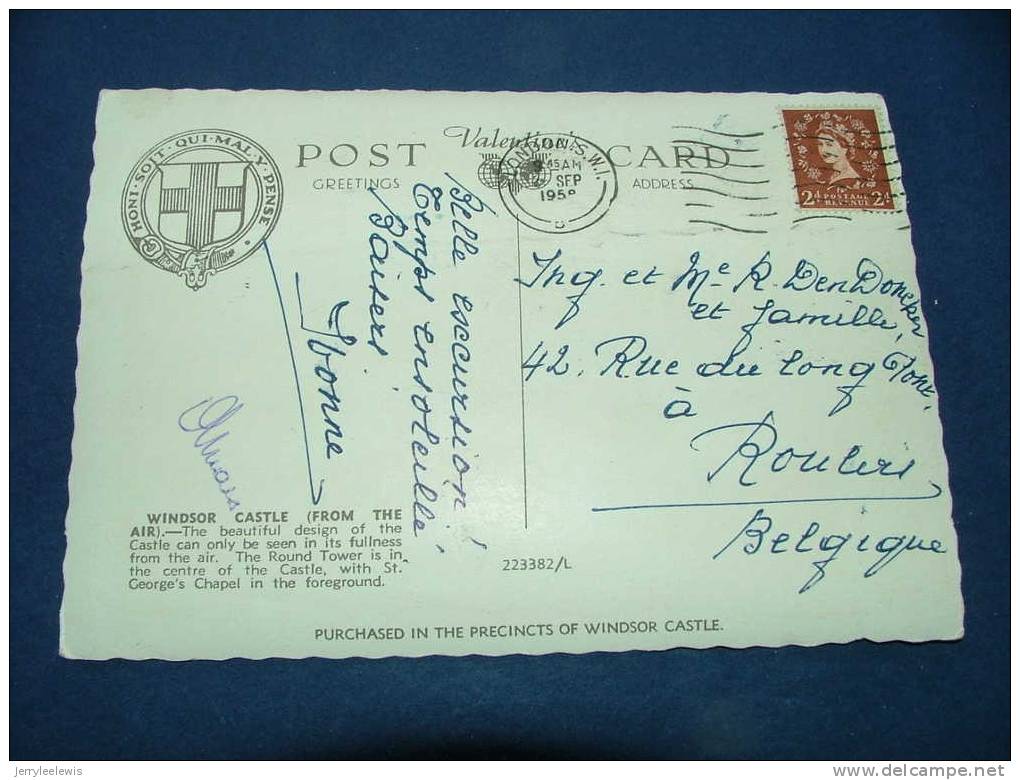 HONI·SOIT·QUI·MAL·Y·PENSE
Valentine's
POST CARD
GREETINGS
ADDRESS
LONDON.S.W.1
45 AM
SEP
2D POSTAGE REVENUE 2D
Belle excursion!
Temps ensoleillé,
Baisers
Ivonne
Ing. et Me R. Den Doncker
et famille,
42. Rue du long Tont.
à
Roulers
Belgique
WINDSOR CASTLE (FROM THE
AIR).—The beautiful design of the
Castle can only be seen in its fullness
from the air. The Round Tower is in
the centre of the Castle, with St.
George's Chapel in the foreground.
223382/L
PURCHASED IN THE PRECINCTS OF WINDSOR CASTLE.
jerryleelewis
www.delcampe.net